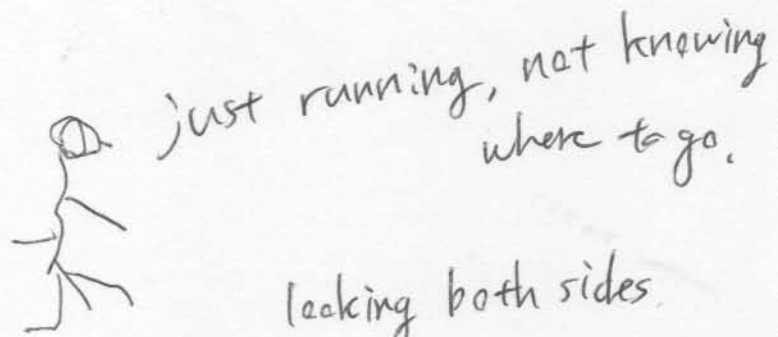 just running, not knowing
where to go.
looking both sides.